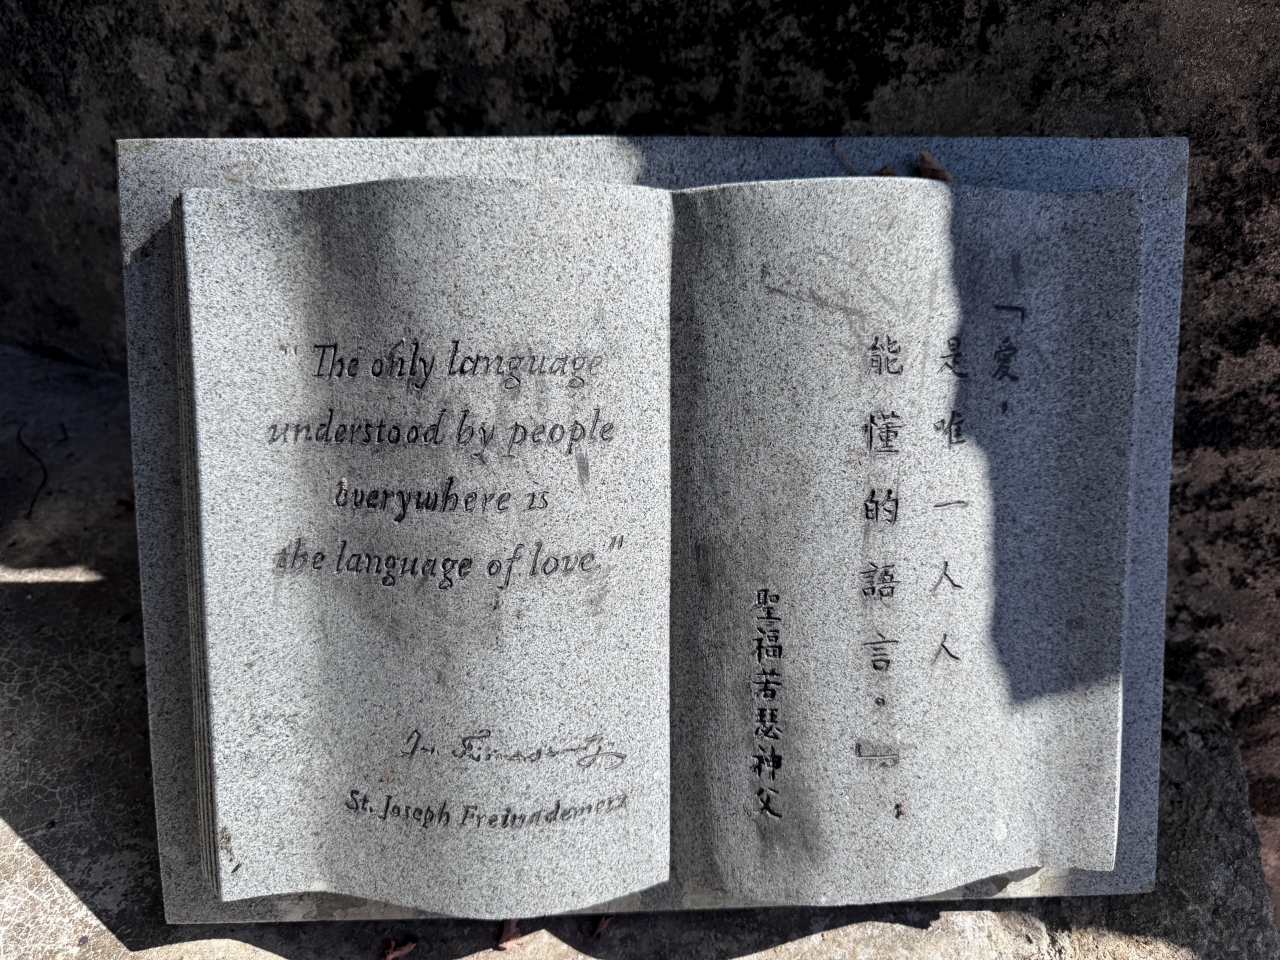 "The only language
understood by people
everywhere is
the language of love"
St. Joseph Freinademerz
「愛，
是唯一人人
能懂的語言。』
聖福若瑟神父